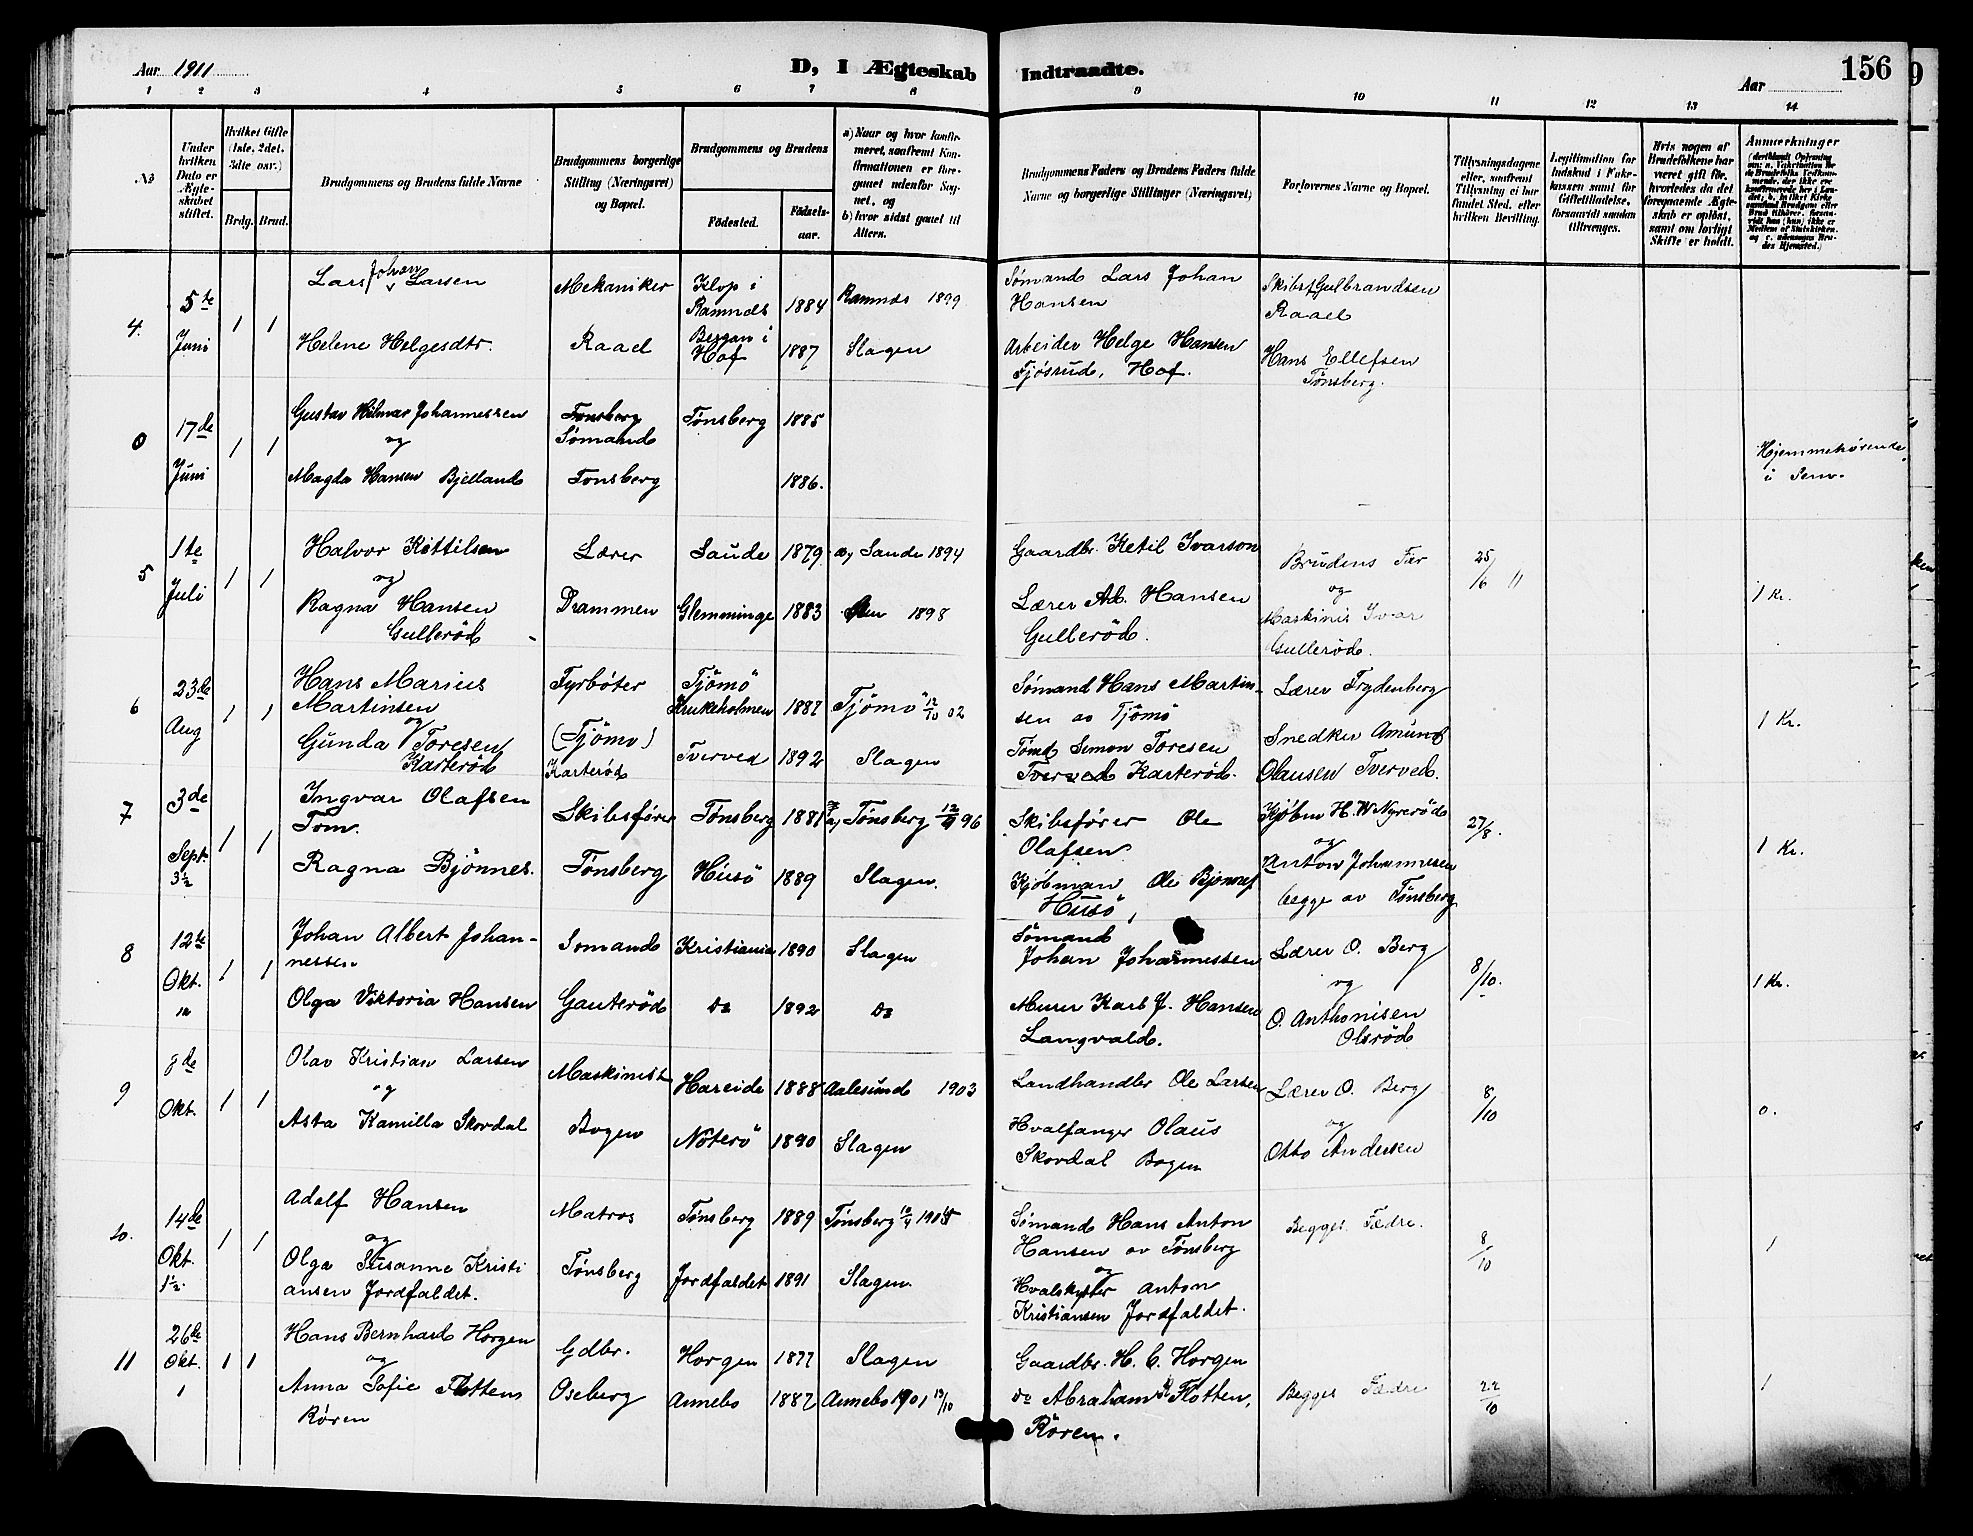 Aar 1911
D, I Ægteskab Indtraadte.
Aar
156
1 2 3 4 5 6 7 8 9 10 11 12 13 14
No
Under hvilken Dato er Ægteskabet stiftet.
Hvilket Gifte (1ste, 2det, 3die osv.)
Brdg. Brud.
Brudgommens og Brudens fulde Navne
Brudgommens borgerlige Stilling (Næringsvei) og Bopæl.
Brudgommens og Brudens
Fødested.
Fødselsaar.
a) Naar og hvor konfirmeret, saafremt Konfirmationen er foregaaet udenfor Sognet, og
b) hvor sidst gaaet til Alters.
Brudgommens Faders og Brudens Faders fulde Navne og borgerlige Stillinger (Næringsvei)
Forlovernes Navne og Bopæl.
Tillysningsdagene eller, saafremt Tillysning ei har fundet Sted, efter hvilken Bevilling.
Legitimation for Indskud i Enkekassen samt for Giftetilladelse, forsaavidt saadan tiltrænges.
Hvis nogen af Brudefolkene har været gift før, hvorledes da det foregaaende Ægteskab er opløst, samt om lovligt Skifte er holdt.
Anmærkninger
4. 5te Juni 1 1
Lars Johan Larsen Mekaniker Klop i Ramnes 1884 Ramnes 1899
Sømand Lars Johan Hansen
Skibsf Gulbrandsen Raael
Helene Helgesdtr. Raael Bergan i Hof 1887 Slagen
Arbeider Helge Hansen Tjøsrud, Hof.
Hans Ellefsen Tønsberg.
0 17de Juni 1 1
Gustav Hilmar Johannessen Tønsberg Sømand Tønsberg 1885
og
Magda Hansen Bjelland Tønsberg 1886.
Hjemmehørende i Sem.
5 1te Juli 1 1
Halvor Kittilsen Lærer Saude 1879 a) Saude 1894
Gaardbr. Ketil Ivarson
Brudens Far
25/6 11
og
Ragna Hansen Gullerød Drammen Glemminge 1883 1898
Lærer Ab. Hansen Gullerød.
Maskinis Ivar Gullerød.
1 Kr.
6 23de Aug 1 1
Hans Marius Martinsen Fyrbøter Tjømø Krukeholmen 1887 Tjømø 12/10 02
Sømand Hans Martinsen av Tjømø
Lærer Frydenberg
og
Gunda Toresen Karterød (Tjømø) Karterød Tverved 1892 Slagen
Tømd Simon Toresen Tverved Karterød.
Snedker Amund Olausen Tverved.
1 Kr.
7 3de Sept. 3½ 1 1
Ingvar Olafsen Tom. Skibsfører Tønsberg 1881 Tønsberg 96
Skibsfører Ole Olafsen
Kjøbm H. W Nyrerød
27/8.
og
Ragna Bjönnes. Tønsberg Husö 1889 Slagen.
Kjøbman Ole Bjönnes Husö,
Anton Johannesen begge av Tønsberg
1 Kr.
8 12te Okt. 1 1
Johan Albert Johannessen Sømand Kristiania 1890 Slagen
Sømand Johan Johannessen
Lærer O. Berg
8/10.
og
Olga Viktoria Hansen Gauterød do 1892 do
Murer Karl J. Hansen Langvald.
O. Anthonisen Olsrød
1 Kr.
9 8de Okt. 1 1
Olav Kristian Larsen Maskinist Hareide 1888 Aalesund 1903
Landhandler Ole Larsen
Lærer O. Berg
8/10
og
Asta Kamilla Skovdal Bogen Nøterø 1890 Slagen
Hvalfanger Olaus Skovdal Bogen
Otto Andersen
0.
10. 14de Okt. 1½. 1 1
Adolf Hansen Matros Tønsberg 1889 Tønsberg
Sømand Hans Anton Hansen av Tønsberg
Begges Fædre.
8/10
1
og
Olga Susanne Kristiansen Jordfaldet. Tønsberg Jordfaldet 1891 Slagen.
Hvalskytter Anton Kristiansen Jordfaldet.
11 26de Okt. 1 1 1
Hans Bernhard Horgen Gdbr. Horgen 1877 Slagen
Gaardbr. H. C. Horgen
og
Anna Sofie Flotten Røren Oseberg Annebo 1882 Annebo 1901 13/10
do Abraham K Flotten, Røren.
Begges Fædre
22/10
1